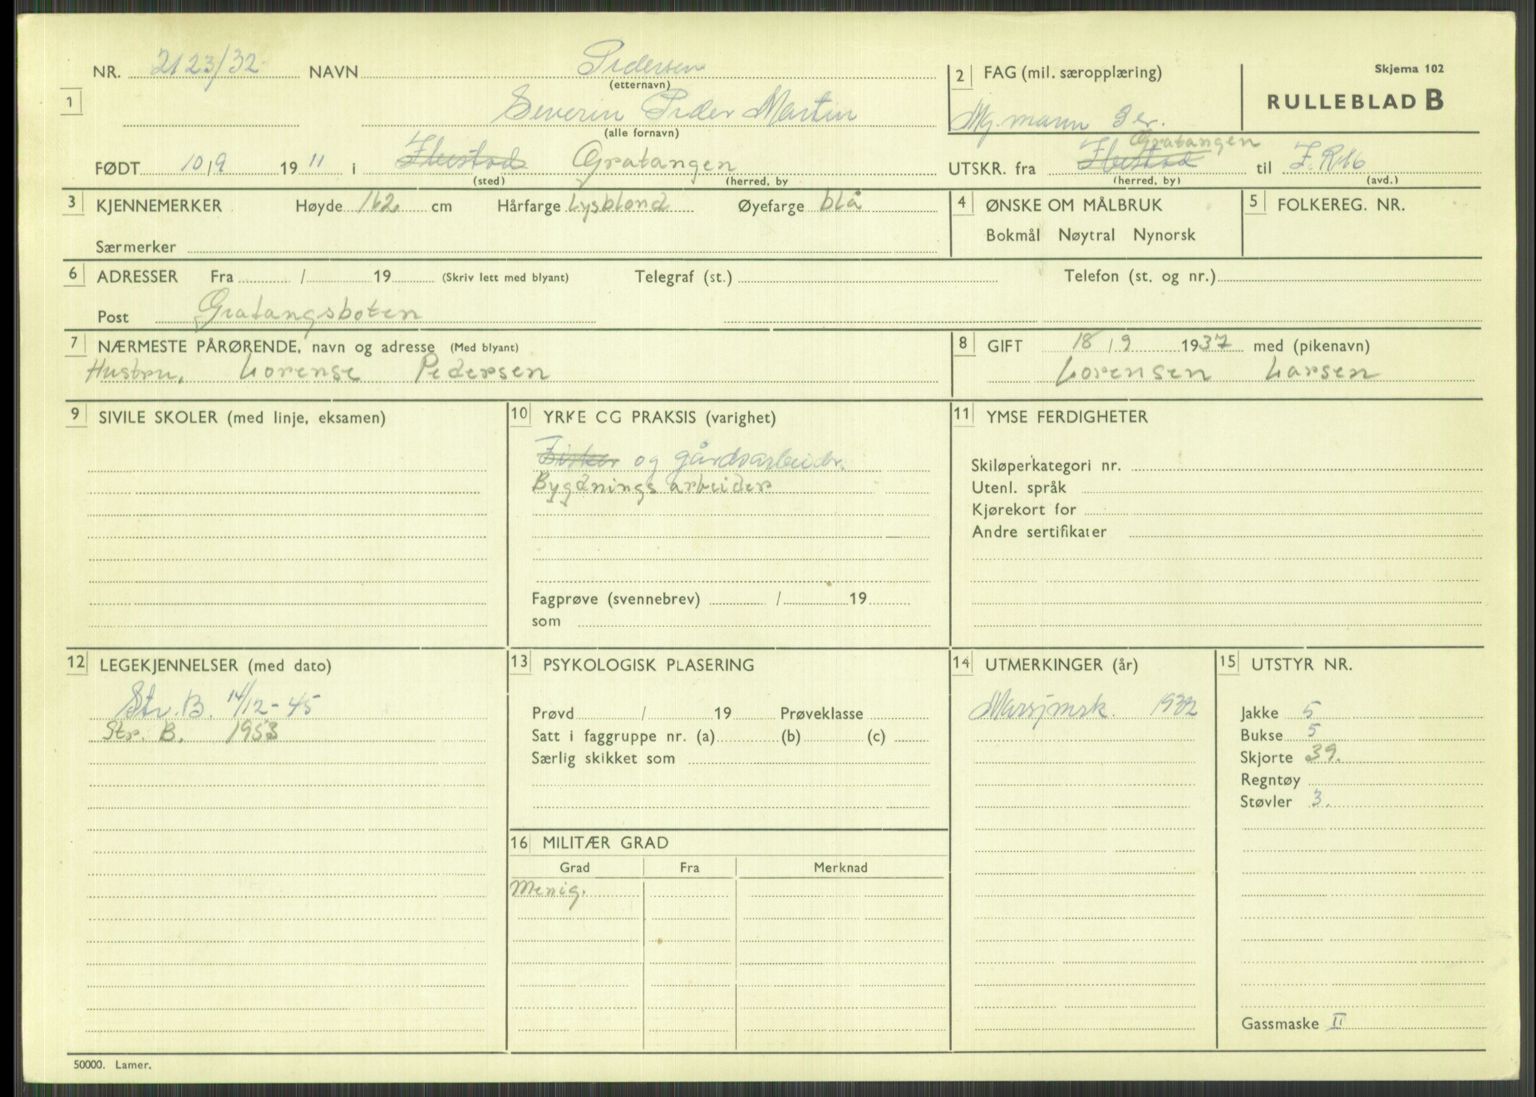 Skjema 102
NR. 2123/32 NAVN Pedersen
(etternavn)
1 Severin Peder Martin
(alle fornavn)
2 FAG (mil. særopplæring)
Mg. mann
RULLEBLAD B
FØDT 10/9 1911 i Ibestad Gratangen
(sted) (herred, by
Gratangen
UTSKR. fra Ibestad til I.R.16
(herred, by) (avd.)
3 KJENNEMERKER Høyde 162 cm Hårfarge Lysblond Øyefarge blå
Særmerker
4 ØNSKE OM MÅLBRUK
Bokmål Nøytral Nynorsk
5 FOLKEREG. NR.
6 ADRESSER Fra / 19 (Skriv lett med blyant) Telegraf (st.) Telefon (st. og nr.)
Post Gratangsboten
7 NÆRMESTE PÅRØRENDE, navn og adresse (Med blyant)
Hustru, Lorense Pedersen
8 GIFT 18/9 1937 med (pikenavn)
Lorensen Larsen
9 SIVILE SKOLER (med linje, eksamen)
10 YRKE OG PRAKSIS (varighet)
Fisker og gårdsarbeider.
Bygdnings arbeider
Fagprøve (svennebrev) / 19
som
11 YMSE FERDIGHETER
Skiløperkategori nr.
Utenl. språk
Kjørekort for
Andre sertifikater
12 LEGEKJENNELSER (med dato)
Str. B. 14/12-45
Str. B. 1953
13 PSYKOLOGISK PLASERING
Prøvd / 19 Prøveklasse
Satt i faggruppe nr. (a) (b) (c)
Særlig skikket som
14 UTMERKINGER (år)
1932
15 UTSTYR NR.
Jakke 5
Bukse 5
Skjorte 39.
Regntøy
Støvler 3.
Gassmaske II
16 MILITÆR GRAD
Grad Fra Merknad
Menig.
50000. Lamer.